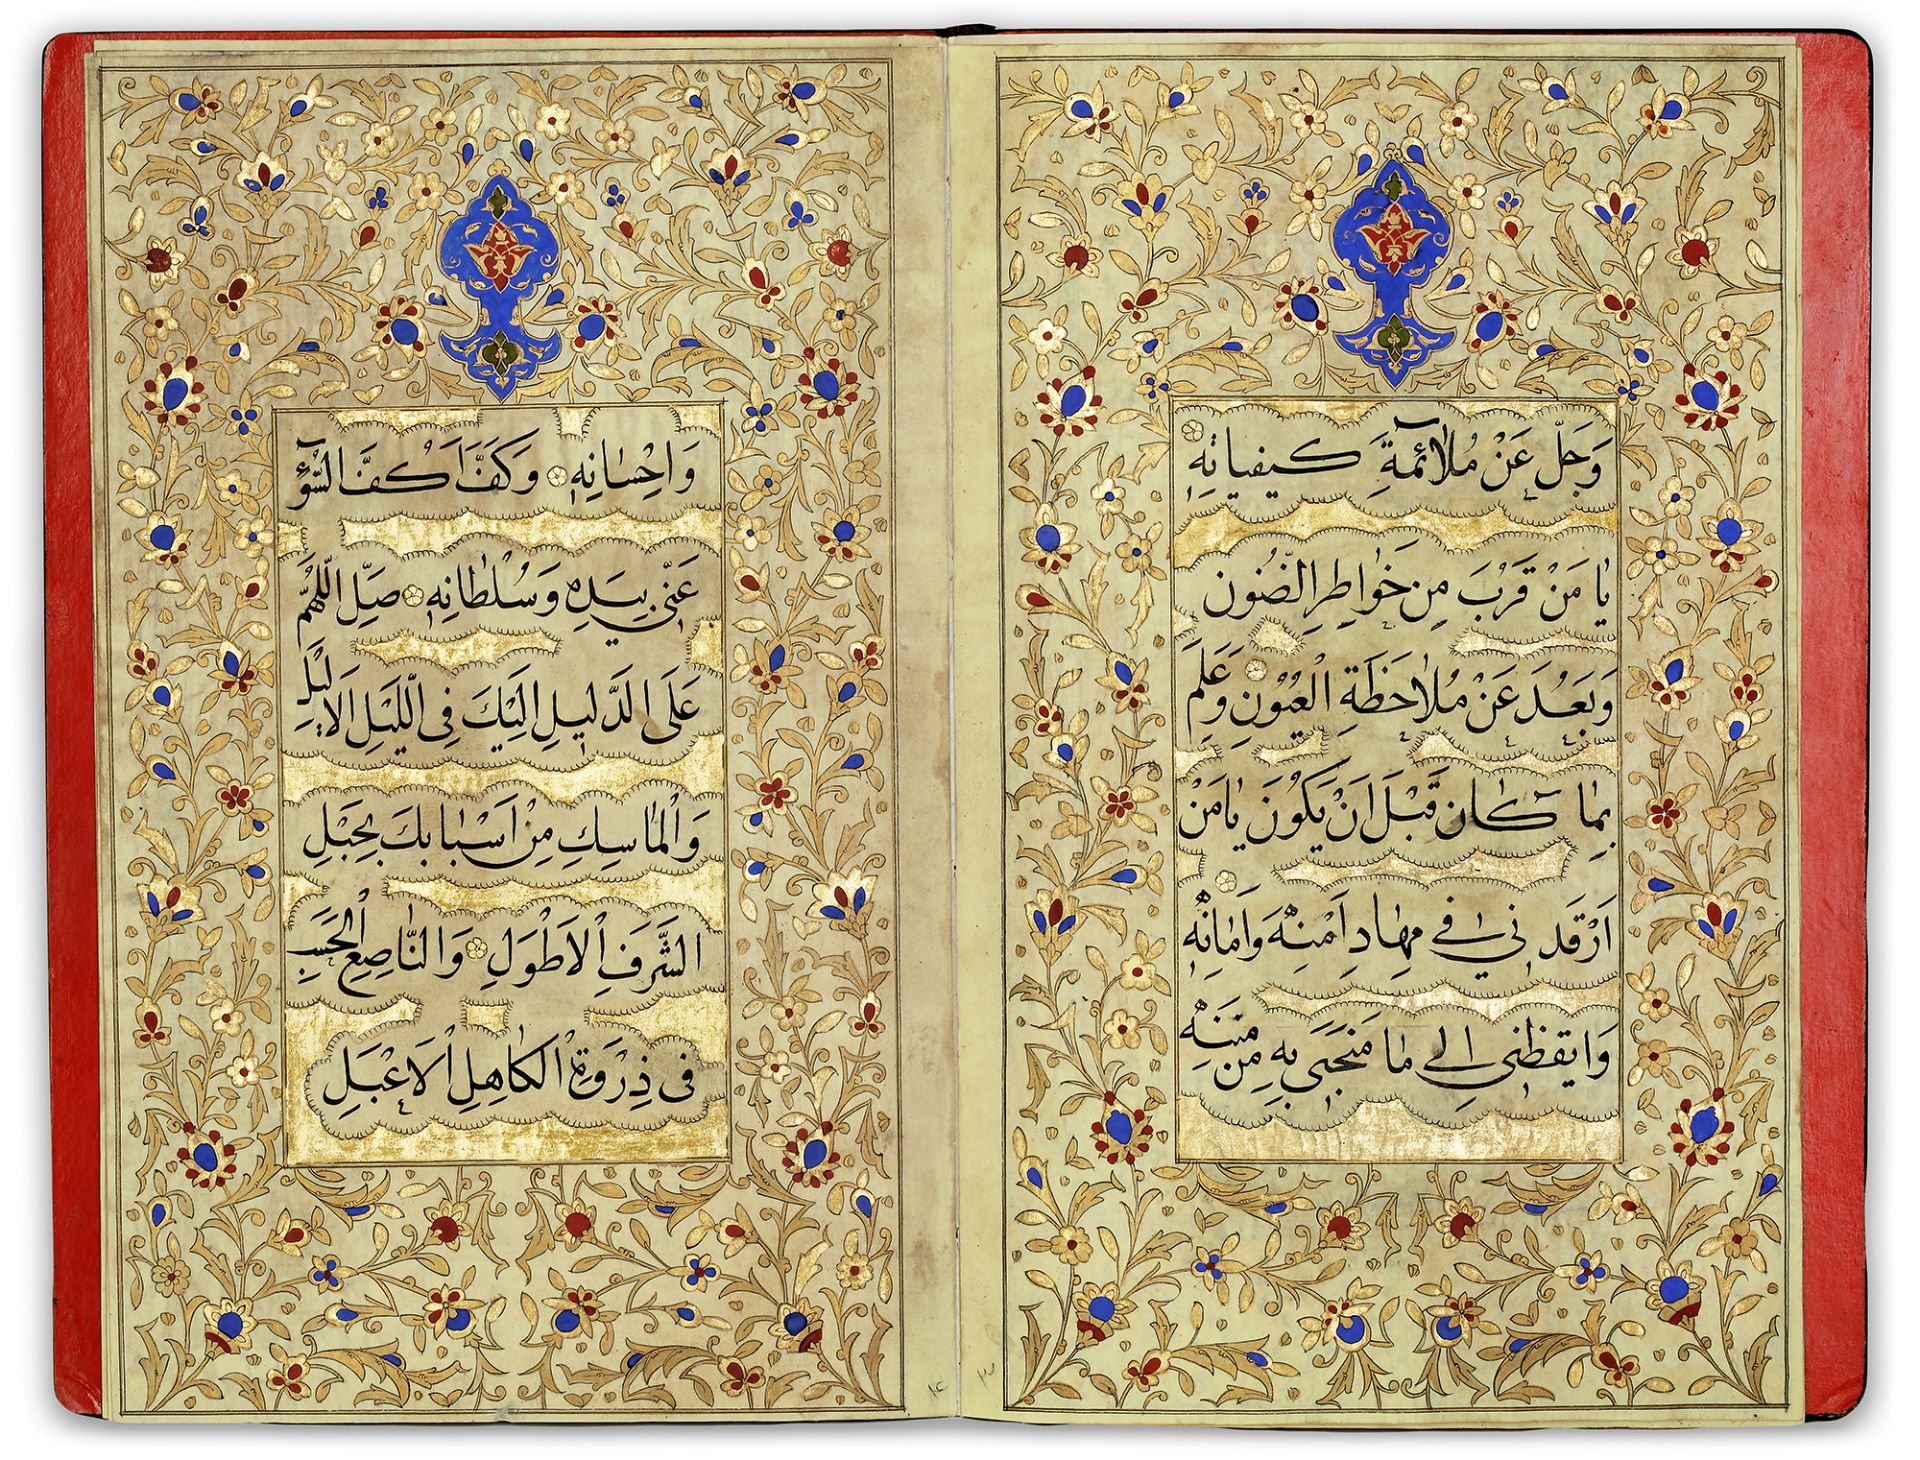 وَجَلَّ عَنْ مُلاٰئَمَةِ كَيفياتِه
يٰا مَنْ قَرْبَ مِن خَوٰاطِرِ الضُنون
وَبَعُدَ عَنْ مُلاٰحَظَةِ الْعُيُونِ وَعَلِمَ
بِمٰا كٰانَ قَبْلَ اَنْ يَكُونَ يٰا مَنْ
اَرْقَدَنٰي في مِهٰادِ اَمْنِهِ وَاَمٰانِهِ
وَايقظَني اِلي مٰا مَنَحَني بِهِ مِن مِنَنِهِ
وَاِحْسٰانِهِ وَكَفَّ اَكُفَّ السُّوٓءِ
عَنّي بِيَدِهِ وَسُلْطانِهِ صَلِّ اللّهُمَّ
عَلَى الدَّليلِ اِلَيْكَ فِي اللَّيْلِ الاَلْيَلِ
وَالْمٰاسِكِ مِنْ اَسْبٰابِكَ بِحَبْلِ
الشَّرَفِ الْاَطْوَلِ وَالنّٰاصِعِ الْحَسَبِ
في ذِرْوَةِ الْكاٰهِلِ الْاَعْبَلِ